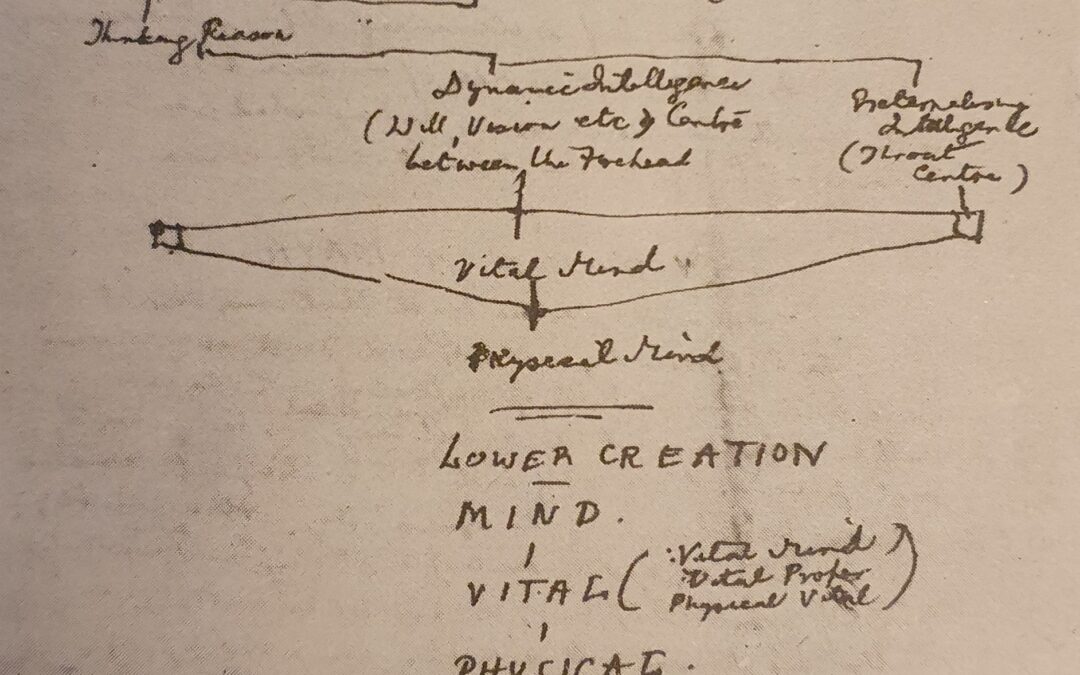 Thinking Reason
Dynamic Intelligence
(Will, Vision etc) Centre
between the Forehead
Externalising
Intelligence
(Throat
Centre)
Vital Mind
Physical Mind
LOWER CREATION
MIND.
VITAL (Vital Mind)
Vital Proper
Physical Vital
PHYSICAL.